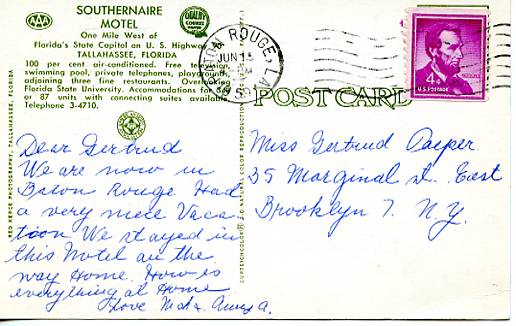 AAA
SOUTHERNAIRE
MOTEL
One Mile West of
Florida's State Capitol on U. S. Highway
TALLAHASSEE, FLORIDA
100 per cent air-conditioned. Free television
swimming pool, private telephones, playground
adjoining three fine restaurants. Overlooking
Florida State University. Accommodations for
or 87 units with connecting suites available
Telephone 3-4710.
QUALITY COURTS
BATON ROUGE, LA.
JUN 15
4¢
U.S. POSTAGE
POST CARD
RED KERCE PHOTOGRAPHY, TALLAHASSEE, FLORIDA
Dear Gertrud
We are now in
Baton Rouge Had
a very nice Vaca
tion We stayed in
this Motel on the
way Home. How is
everything at Home
Love
Miss Gertrud
35 Marginal st. East
Brooklyn 7. N.Y.